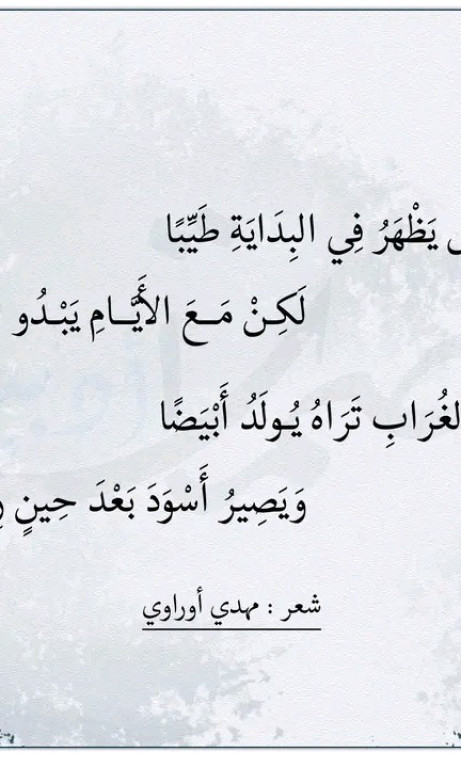 يَظْهَرُ فِي البِدَايَةِ طَيِّبًا
لَكِنْ مَعَ الأَيَّامِ يَبْدُو
الغُرَابِ تَرَاهُ يُولَدُ أَبْيَضًا
وَيَصِيرُ أَسْوَدَ بَعْدَ حِينٍ
شعر : مهدي أوراوي